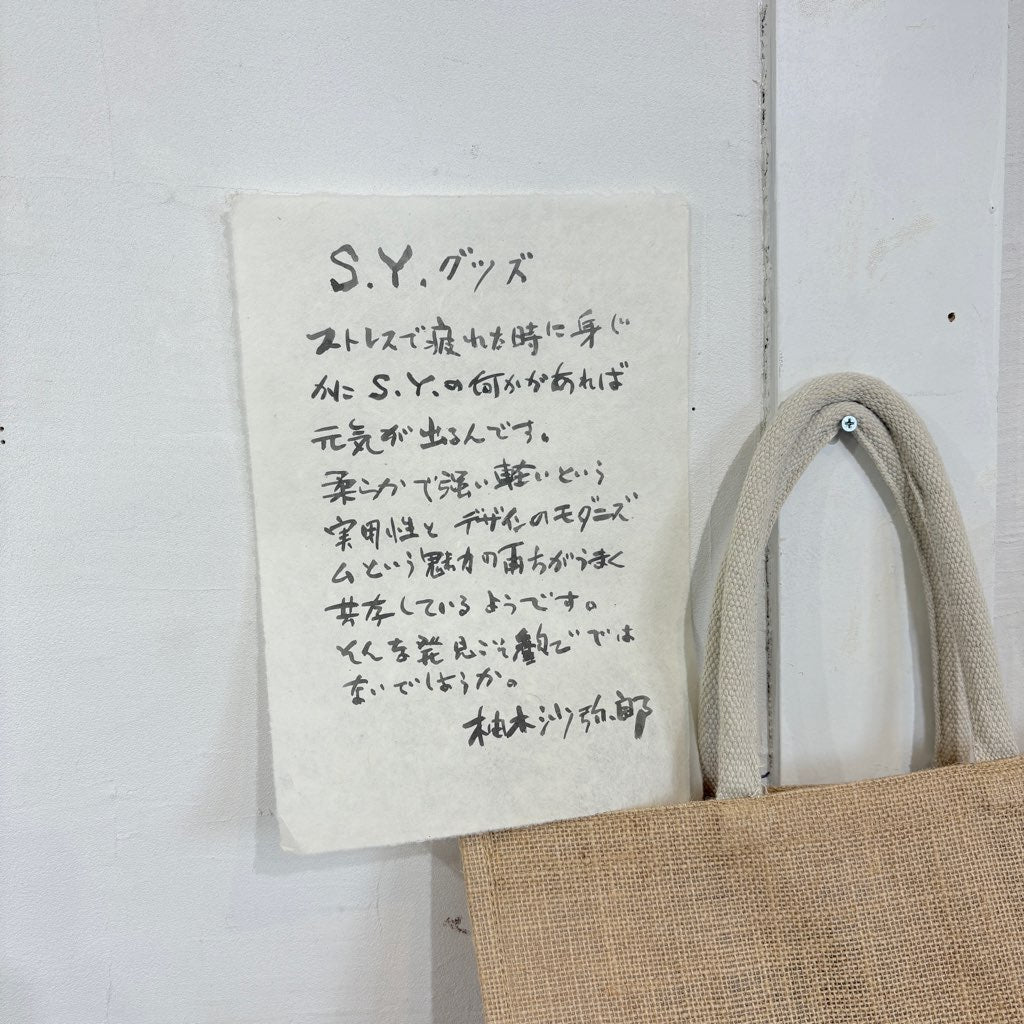 S.Y.グッズ
ストレスで疲れた時に身ぢ
かに S.Y.の何かがあれば
元気が出るんです。
柔らかで強い軽いという
実用性と デザインのモダニズ
ムという魅力の両方がうまく
共存しているようです。
そんな発見こそ
ないでしょうか。
柚木沙弥郎